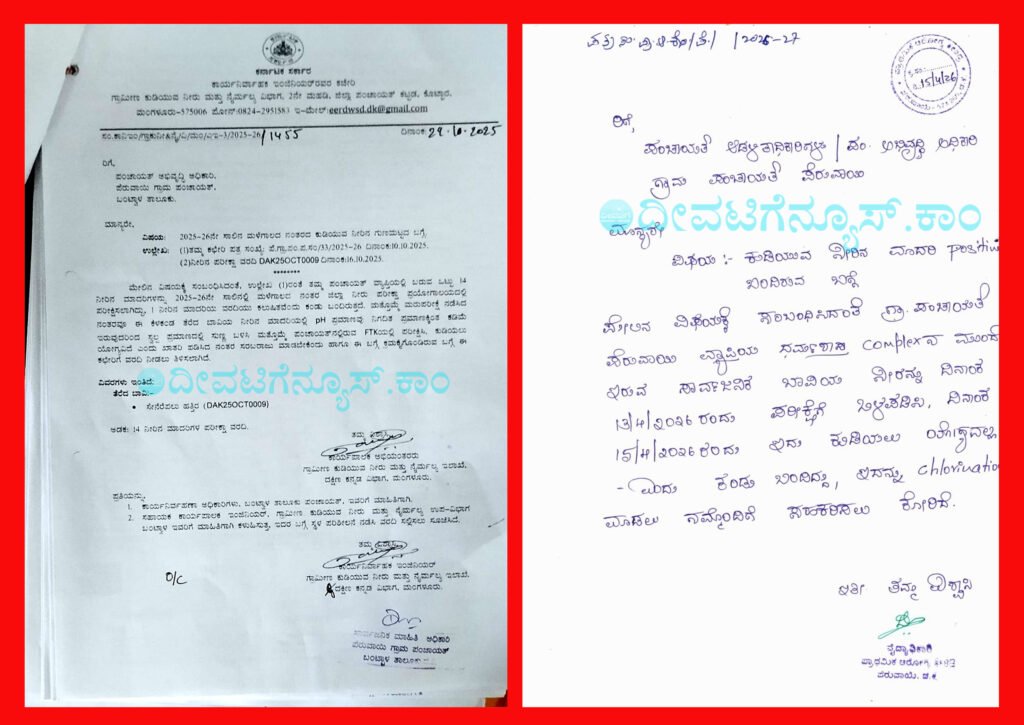 ಕರ್ನಾಟಕ ಸರ್ಕಾರ
ಕಾರ್ಯನಿರ್ವಾಹಕ ಇಂಜಿನಿಯರ್‌ರವರ ಕಚೇರಿ
ಗ್ರಾಮೀಣ ಕುಡಿಯುವ ನೀರು ಮತ್ತು ನೈರ್ಮಲ್ಯ ವಿಭಾಗ, 2ನೇ ಮಹಡಿ, ಜಿಲ್ಲಾ ಪಂಚಾಯತ್ ಕಟ್ಟಡ, ಕೊಟ್ಟಾರ,
ಮಂಗಳೂರು-575006 ಪೋನ್:0824-2951583 ಇ-ಮೇಲ್:eerdwsd.dk@gmail.com
2025-26/1455 ದಿನಾಂಕ:29.10.2025
ರಿಗೆ,
ಪಂಚಾಯತ್ ಅಭಿವೃದ್ಧಿ ಅಧಿಕಾರಿ,
ಪೆರುವಾಯಿ ಗ್ರಾಮ ಪಂಚಾಯತ್.
ಬಂಟ್ವಾಳ ತಾಲೂಕು.
ಮಾನ್ಯರೇ,
ವಿಷಯ: 2025-26ನೇ ಸಾಲಿನ ಮಳೆಗಾಲದ ನಂತರದ ಕುಡಿಯುವ ನೀರಿನ ಗುಣಮಟ್ಟದ ಬಗ್ಗೆ.
ಉಲ್ಲೇಖ: (1)ತಮ್ಮ ಕಛೇರಿ ಪತ್ರ ಸಂಖ್ಯೆ: ಪೆ.ಗ್ರಾ.ಪಂ.ಪ.ಸಂ/33/2025-26 ದಿನಾಂಕ:10.10.2025.
(2)ನೀರಿನ ಪರೀಕ್ಷಾ ವರದಿ DAK25OCT0009 ದಿನಾಂಕ:16.10.2025.
********
ಮೇಲಿನ ವಿಷಯಕ್ಕೆ ಸಂಬಂಧಿಸಿದಂತೆ, ಉಲ್ಲೇಖ (1)ರಂತೆ ತಮ್ಮ ಪಂಚಾಯತ್ ವ್ಯಾಪ್ತಿಯಲ್ಲಿ ಬರುವ ಒಟ್ಟು 14
ನೀರಿನ ಮಾದರಿಗಳನ್ನು 2025-26ನೇ ಸಾಲಿನಲ್ಲಿ ಮಳೆಗಾಲದ ನಂತರ ಜಿಲ್ಲಾ ನೀರು ಪರೀಕ್ಷಾ ಪ್ರಯೋಗಾಲಯದಲ್ಲಿ
ಪರೀಕ್ಷಿಸಲಾಗಿದ್ದು, 1 ನೀರಿನ ಮಾದರಿಯ ವರದಿಯು ಕಲುಷಿತವೆಂದು ಕಂಡು ಬಂದಿರುತ್ತದೆ. ಮತ್ತೊಮ್ಮೆ ಮರುಪರೀಕ್ಷೆ ನಡೆಸಿದ
ನಂತರವೂ ಈ ಕೆಳಕಂಡ ತೆರೆದ ಬಾವಿಯ ನೀರಿನ ಮಾದರಿಯಲ್ಲಿ pH ಪ್ರಮಾಣವು ನಿಗದಿತ ಪ್ರಮಾಣಕ್ಕಿಂತ ಕಡಿಮೆ
ಇರುವುದರಿಂದ ಸ್ವಲ್ಪ ಪ್ರಮಾಣದಲ್ಲಿ ಸುಣ್ಣ ಬಳಸಿ ಮತ್ತೊಮ್ಮೆ ಪಂಚಾಯತ್‌ನಲ್ಲಿರುವ FTKಯಲ್ಲಿ ಪರೀಕ್ಷಿಸಿ, ಕುಡಿಯಲು
ಯೋಗ್ಯವಿದೆ ಎಂದು ಖಾತರಿ ಪಡಿಸಿದ ನಂತರ ಸರಬರಾಜು ಮಾಡಬೇಕೆಂದು ಹಾಗೂ ಈ ಬಗ್ಗೆ ಕ್ರಮಕೈಗೊಂಡಿರುವ ಬಗ್ಗೆ ಈ
ಕಛೇರಿಗೆ ವರದಿ ನೀಡಲು ತಿಳಿಸಲಾಗಿದೆ.
ವಿವರಗಳು ಇಂತಿವೆ:
ತೆರೆದ ಬಾವಿ:-
• ಸೇನೆರೆಪಲು ಹತ್ತಿರ (DAK25OCT0009)
ದೀವಟಿಗೆನ್ಯೂಸ್.ಕಾಂ
ಅಡಕ: 14 ನೀರಿನ ಮಾದರಿಗಳ ಪರೀಕ್ಷಾ ವರದಿ.
ತಮ್ಮ ವಿಶ್ವಾಸಿ
ಕಾರ್ಯಪಾಲಕ ಅಭಿಯಂತರರು
ಗ್ರಾಮೀಣ ಕುಡಿಯುವ ನೀರು ಮತ್ತು ನೈರ್ಮಲ್ಯ ಇಲಾಖೆ,
ದಕ್ಷಿಣ ಕನ್ನಡ ವಿಭಾಗ, ಮಂಗಳೂರು.
ಪ್ರತಿಯನ್ನು,
1. ಕಾರ್ಯನಿರ್ವಹಣಾ ಅಧಿಕಾರಿಗಳು, ಬಂಟ್ವಾಳ ತಾಲೂಕು ಪಂಚಾಯತ್, ಇವರಿಗೆ ಮಾಹಿತಿಗಾಗಿ.
2. ಸಹಾಯಕ ಕಾರ್ಯಪಾಲಕ ಇಂಜಿನಿಯರ್, ಗ್ರಾಮೀಣ ಕುಡಿಯುವ ನೀರು ಮತ್ತು ನೈರ್ಮಲ್ಯ ಉಪ-ವಿಭಾಗ
ಬಂಟ್ವಾಳ ಇವರಿಗೆ ಮಾಹಿತಿಗಾಗಿ ಕಳುಹಿಸುತ್ತ, ಇದರ ಬಗ್ಗೆ ಸ್ಥಳ ಪರಿಶೀಲನೆ ನಡೆಸಿ ವರದಿ ಸಲ್ಲಿಸಲು ಸೂಚಿಸಿದೆ.
ತಮ್ಮ ವಿಶ್ವಾಸಿ
ಕಾರ್ಯನಿರ್ವಾಹಕ ಇಂಜಿನಿಯರ್
ಗ್ರಾಮೀಣ ಕುಡಿಯುವ ನೀರು ಮತ್ತು ನೈರ್ಮಲ್ಯ ಇಲಾಖೆ,
ದಕ್ಷಿಣ ಕನ್ನಡ ವಿಭಾಗ, ಮಂಗಳೂರು.
O/C
ಸಾರ್ವಜನಿಕ ಮಾಹಿತಿ ಅಧಿಕಾರಿ
ಪೆರುವಾಯಿ ಗ್ರಾಮ ಪಂಚಾಯತ್
ಬಂಟ್ವಾಳ ತಾಲೂಕು
/2026-27
15/4/26
ರಿಗೆ,
ಪಂಚಾಯತ್ ಆಡಳಿತಾಧಿಕಾರಿಗಳು / ಪಂ. ಅಭಿವೃದ್ಧಿ ಅಧಿಕಾರಿ
ಗ್ರಾಮ ಪಂಚಾಯತ್ ಪೆರುವಾಯಿ
ದೀವಟಿಗೆನ್ಯೂಸ್.ಕಾಂ
ಮಾನ್ಯರೇ,
ವಿಷಯ :- ಕುಡಿಯುವ ನೀರಿನ ಮಾದರಿ positive
ಬಂದಿರುವ ಬಗ್ಗೆ
ಮೇಲಿನ ವಿಷಯಕ್ಕೆ ಸಂಬಂಧಿಸಿದಂತೆ ಗ್ರಾ. ಪಂಚಾಯತ್
ಪೆರುವಾಯಿ ವ್ಯಾಪ್ತಿಯ complexನ ಮುಂದೆ
ಇರುವ ಸಾರ್ವಜನಿಕ ಬಾವಿಯ ನೀರನ್ನು ದಿನಾಂಕ
13/4/2026 ರಂದು ಪರೀಕ್ಷೆಗೆ ಒಳಪಡಿಸಿ, ದಿನಾಂಕ
15/4/2026 ರಂದು ಇದು ಕುಡಿಯಲು ಯೋಗ್ಯವಲ್ಲ
- ಎಂದು ಕಂಡು ಬಂದಿದ್ದು, ಇದನ್ನು chlorination
ಮಾಡಲು ನಮ್ಮೊಂದಿಗೆ ಸಹಕರಿಸಲು ಕೋರಿದೆ.
ಇತೀ ತಮ್ಮ ವಿಶ್ವಾಸಿ
ವೈದ್ಯಾಧಿಕಾರಿ
ಪ್ರಾಥಮಿಕ ಆರೋಗ್ಯ ಕೇಂದ್ರ
ಪೆರುವಾಯಿ, ದ.ಕ.